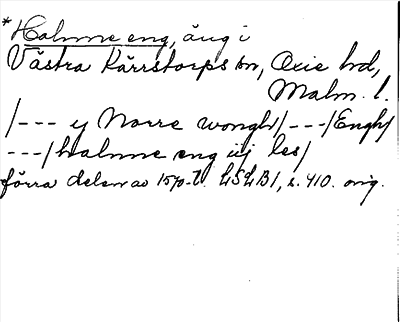 *Holmme eng, äng i
Västra Kärrstorps sn, Oxie hd,
Malm. l.
/--- y Norre wongh/---/Engh/
---/Holmme eng iij les/
förra delen av 1570-t. LSLB1, s. 410. orig.